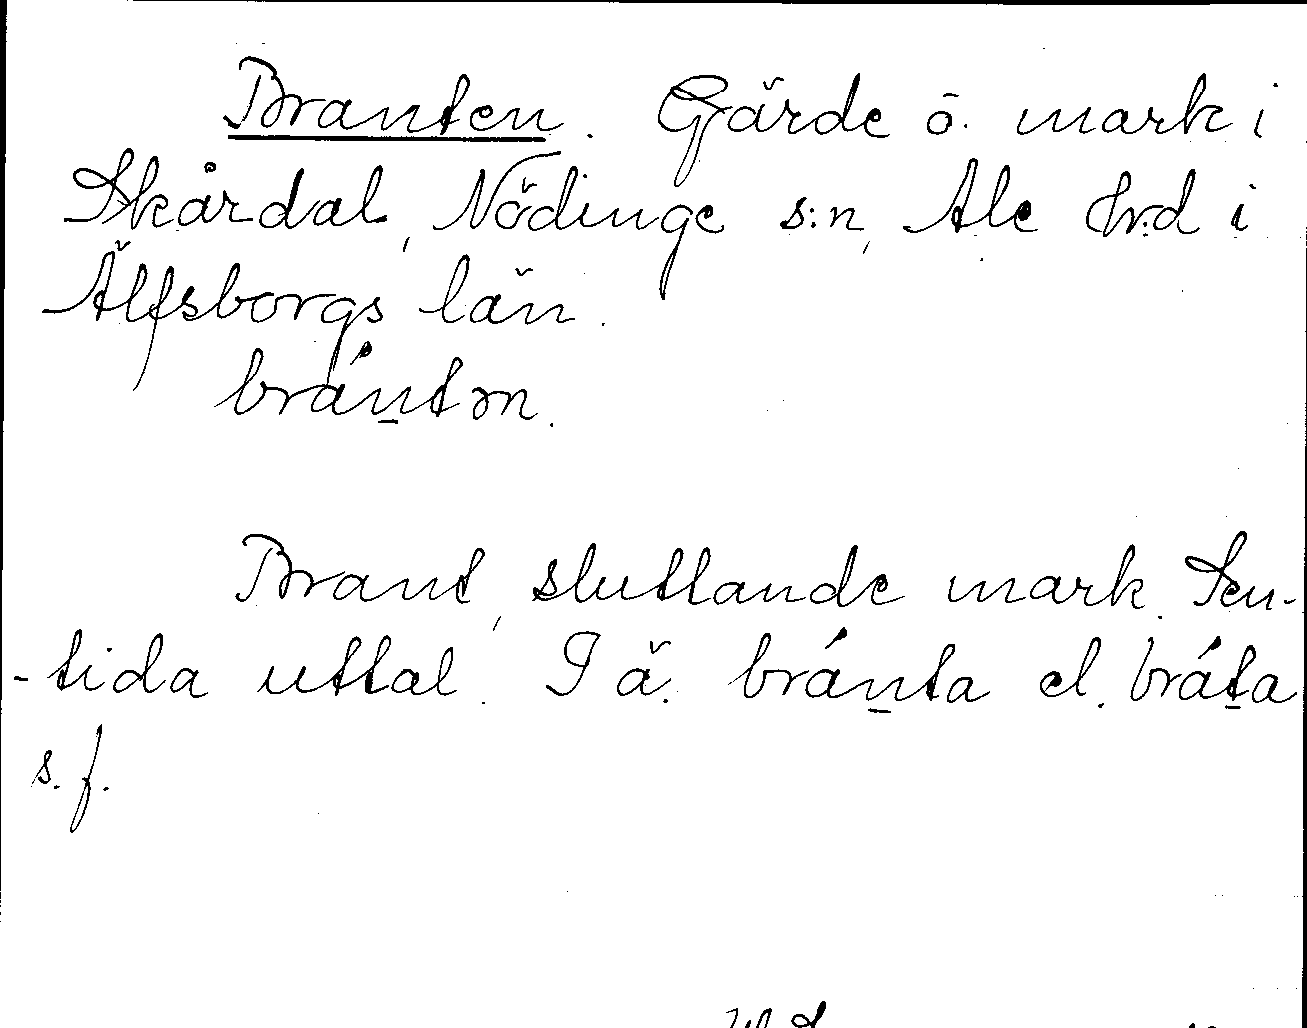 Branten. Gärde o. mark i
Skårdal, Nödinge s:n, Ale hrd i
Älfsborgs län.
bránt̠ən.
Brant, sluttande mark. Sen-
-tida uttal. I ä. brán̠ta el. brát̠a
s. f.